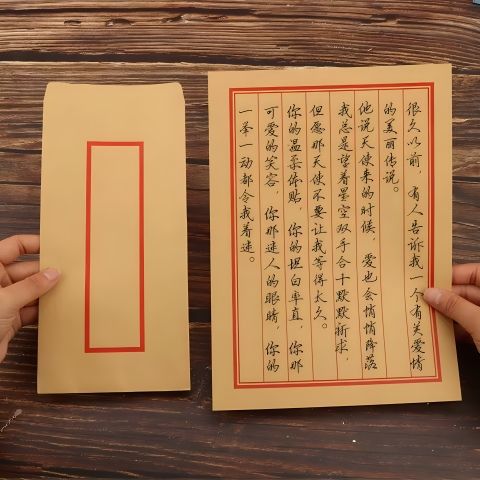 很久以前，有人告诉我一个有关爱情
的美丽传说。
他说天使来的时候，爱也会悄悄降落
我总是望着星空双手合十默默祈求，
但愿那天使不要让我等得太久。
你的温柔体贴，你的坦白率直，你那
可爱的笑容，你那迷人的眼睛，你的
一举一动都令我着迷。